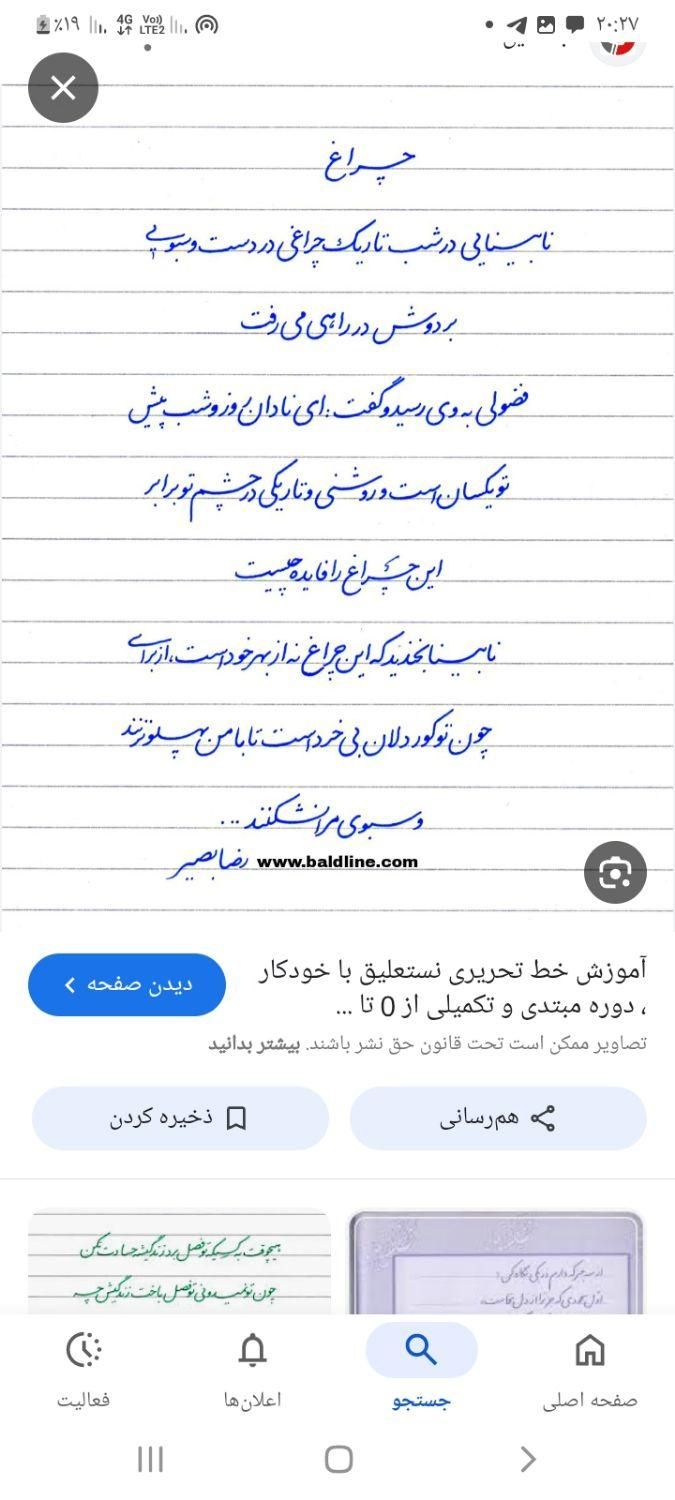 ٪۱۹ 4G Vo) LTE2 ۲۰:۲۷
چراغ
نابینایی در شب تاریک چراغی در دست و سبویی
بر دوش در راهی می رفت
فضولی به وی رسید و گفت: ای نادان روز و شب پیش
تو یکسان است و روشنی و تاریکی در چشم تو برابر
این چراغ را فایده چیست
نابینا بخندید که این چراغ نه از بهر خود است، از برای
چون تو کور دلان بی خرد است تا با من پهلو نزنند
و سبوی مرا نشکنند ...
رضا بصیر www.baldline.com
آموزش خط تحریری نستعلیق با خودکار
، دوره مبتدی و تکمیلی از 0 تا ...
دیدن صفحه
تصاویر ممکن است تحت قانون حق نشر باشند. بیشتر بدانید
هم‌رسانی
ذخیره کردن
صفحه اصلی
جستجو
اعلان‌ها
فعالیت